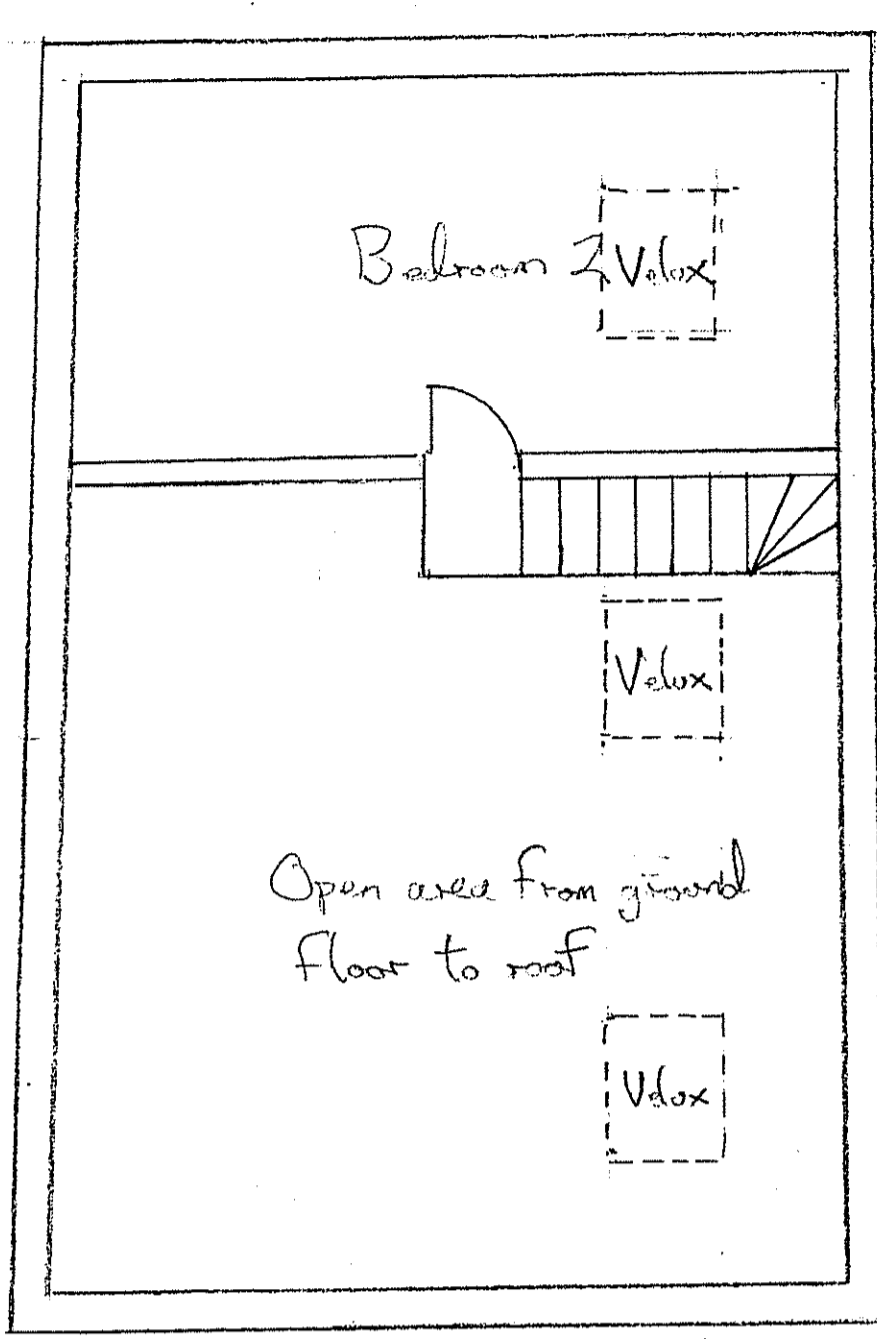 Bedroom 2 Velux
Velux
Open area from ground
floor to roof
Velux